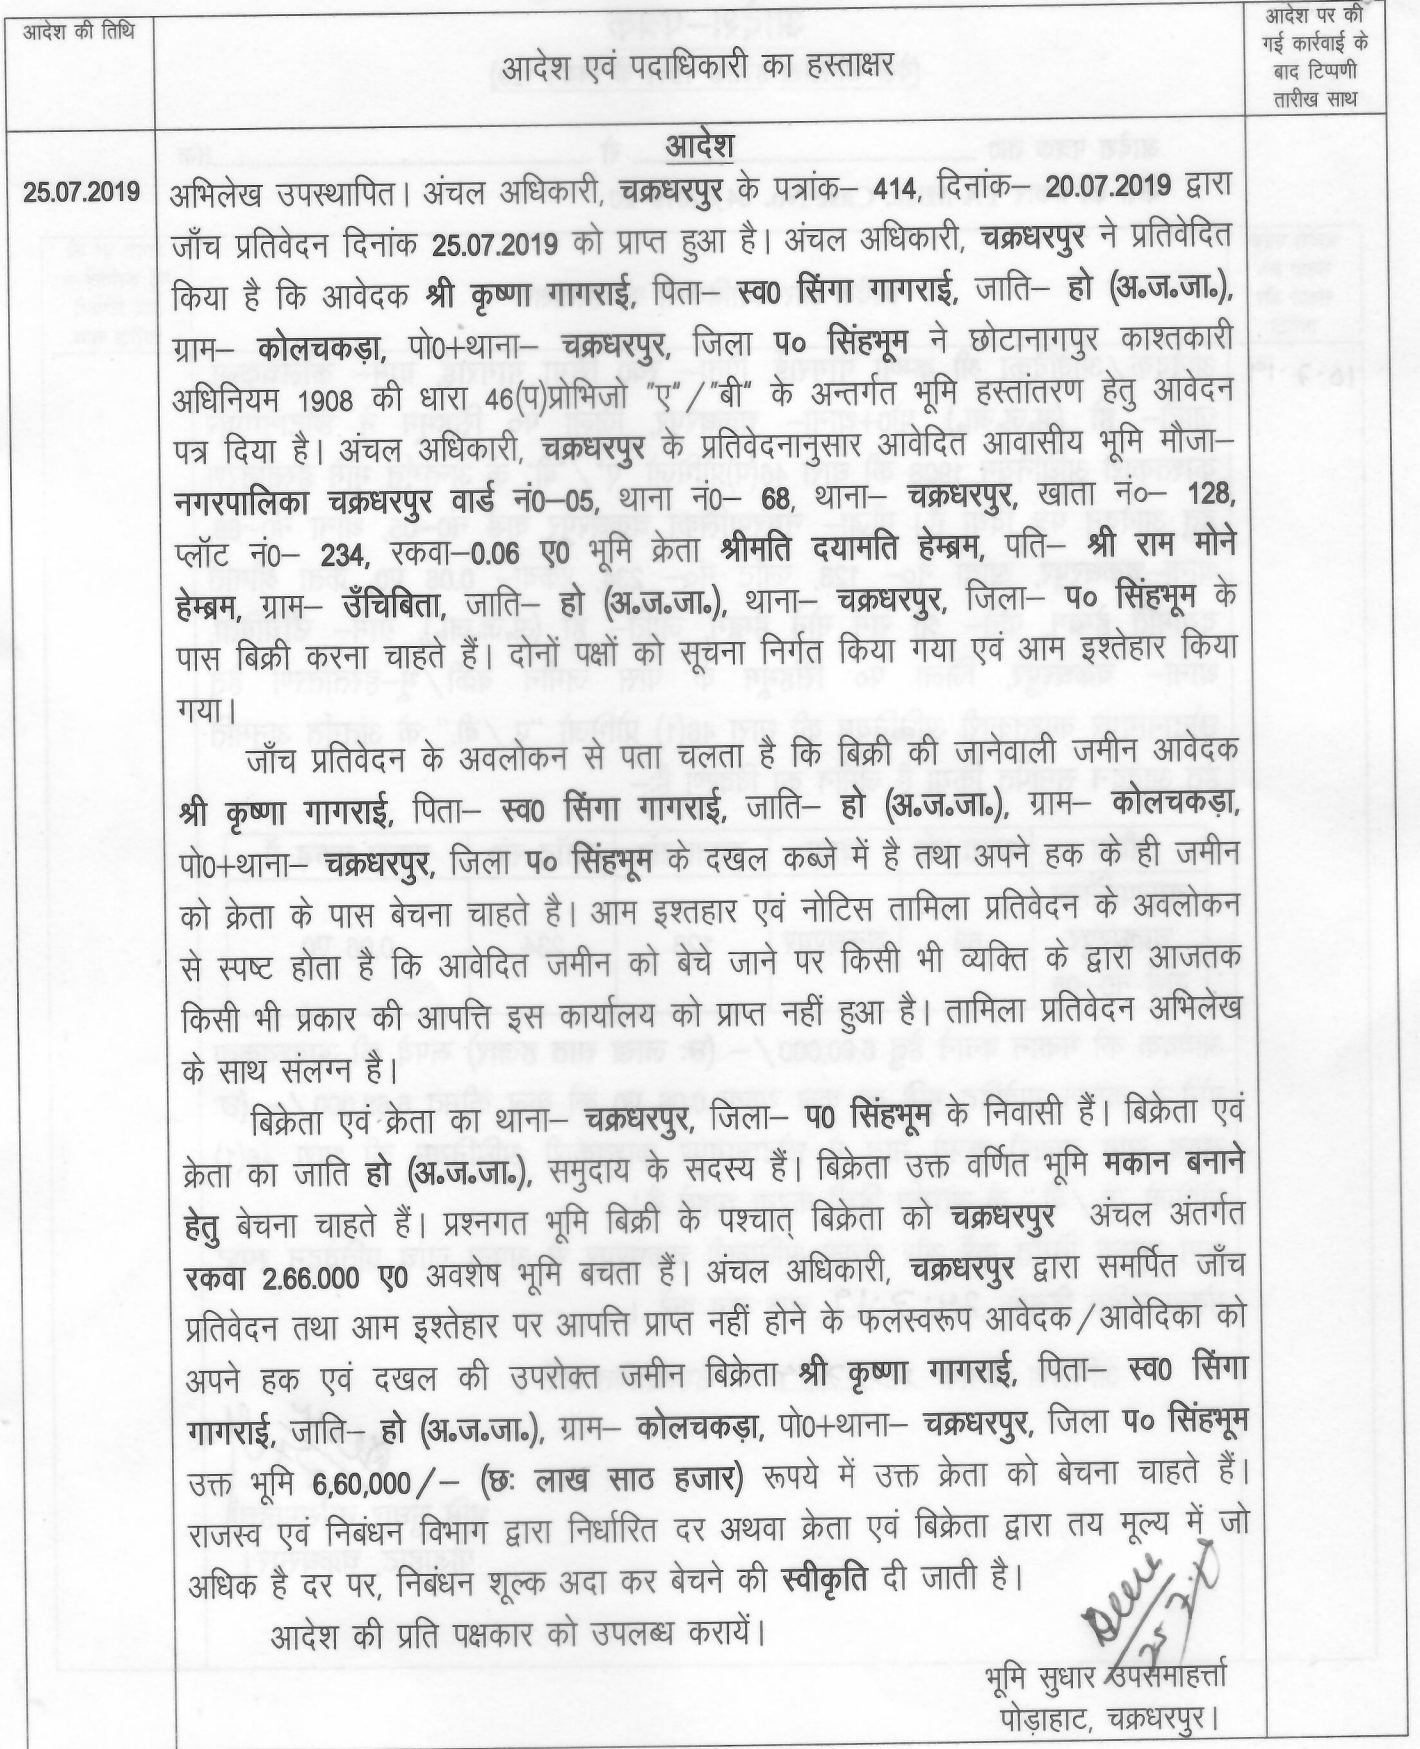 आदेश की तिथि
आदेश एवं पदाधिकारी का हस्ताक्षर
आदेश पर की
गई कार्रवाई के
बाद टिप्पणी
तारीख साथ
आदेश
25.07.2019
अभिलेख उपस्थापित। अंचल अधिकारी, चक्रधरपुर के पत्रांक– 414, दिनांक– 20.07.2019 द्वारा
जाँच प्रतिवेदन दिनांक 25.07.2019 को प्राप्त हुआ है। अंचल अधिकारी, चक्रधरपुर ने प्रतिवेदित
किया है कि आवेदक श्री कृष्णा गागराई, पिता– स्व0 सिंगा गागराई, जाति– हो (अ.ज.जा.),
ग्राम– कोलचकड़ा, पो0+थाना– चक्रधरपुर, जिला प० सिंहभूम ने छोटानागपुर काश्तकारी
अधिनियम 1908 की धारा 46(प)प्रोभिजो "ए"/"बी" के अन्तर्गत भूमि हस्तांतरण हेतु आवेदन
पत्र दिया है। अंचल अधिकारी, चक्रधरपुर के प्रतिवेदनानुसार आवेदित आवासीय भूमि मौजा–
नगरपालिका चक्रधरपुर वार्ड नं0–05, थाना नं0– 68, थाना– चक्रधरपुर, खाता नं०– 128,
प्लॉट नं0– 234, रकवा–0.06 ए0 भूमि क्रेता श्रीमति दयामति हेम्ब्रम, पति– श्री राम मोने
हेम्ब्रम, ग्राम– उँचिबिता, जाति– हो (अ.ज.जा.), थाना– चक्रधरपुर, जिला– प० सिंहभूम के
पास बिक्री करना चाहते हैं। दोनों पक्षों को सूचना निर्गत किया गया एवं आम इश्तेहार किया
गया।
जाँच प्रतिवेदन के अवलोकन से पता चलता है कि बिक्री की जानेवाली जमीन आवेदक
श्री कृष्णा गागराई, पिता– स्व0 सिंगा गागराई, जाति– हो (अ.ज.जा.), ग्राम– कोलचकड़ा,
पो0+थाना– चक्रधरपुर, जिला प० सिंहभूम के दखल कब्जे में है तथा अपने हक के ही जमीन
को क्रेता के पास बेचना चाहते है। आम इश्तहार एवं नोटिस तामिला प्रतिवेदन के अवलोकन
से स्पष्ट होता है कि आवेदित जमीन को बेचे जाने पर किसी भी व्यक्ति के द्वारा आजतक
किसी भी प्रकार की आपत्ति इस कार्यालय को प्राप्त नहीं हुआ है। तामिला प्रतिवेदन अभिलेख
के साथ संलग्न है।
बिक्रेता एवं क्रेता का थाना– चक्रधरपुर, जिला– प0 सिंहभूम के निवासी हैं। बिक्रेता एवं
क्रेता का जाति हो (अ.ज.जा.), समुदाय के सदस्य हैं। बिक्रेता उक्त वर्णित भूमि मकान बनाने
हेतु बेचना चाहते हैं। प्रश्नगत भूमि बिक्री के पश्चात् बिक्रेता को चक्रधरपुर अंचल अंतर्गत
रकवा 2.66.000 ए0 अवशेष भूमि बचता हैं। अंचल अधिकारी, चक्रधरपुर द्वारा समर्पित जाँच
प्रतिवेदन तथा आम इश्तेहार पर आपत्ति प्राप्त नहीं होने के फलस्वरूप आवेदक/आवेदिका को
अपने हक एवं दखल की उपरोक्त जमीन बिक्रेता श्री कृष्णा गागराई, पिता– स्व0 सिंगा
गागराई, जाति– हो (अ.ज.जा.), ग्राम– कोलचकड़ा, पो0+थाना– चक्रधरपुर, जिला प० सिंहभूम
उक्त भूमि 6,60,000/– (छः लाख साठ हजार) रूपये में उक्त क्रेता को बेचना चाहते हैं।
राजस्व एवं निबंधन विभाग द्वारा निर्धारित दर अथवा क्रेता एवं बिक्रेता द्वारा तय मूल्य में जो
अधिक है दर पर, निबंधन शूल्क अदा कर बेचने की स्वीकृति दी जाती है।
आदेश की प्रति पक्षकार को उपलब्ध करायें।
भूमि सुधार उपसमाहर्त्ता
पोड़ाहाट, चक्रधरपुर।